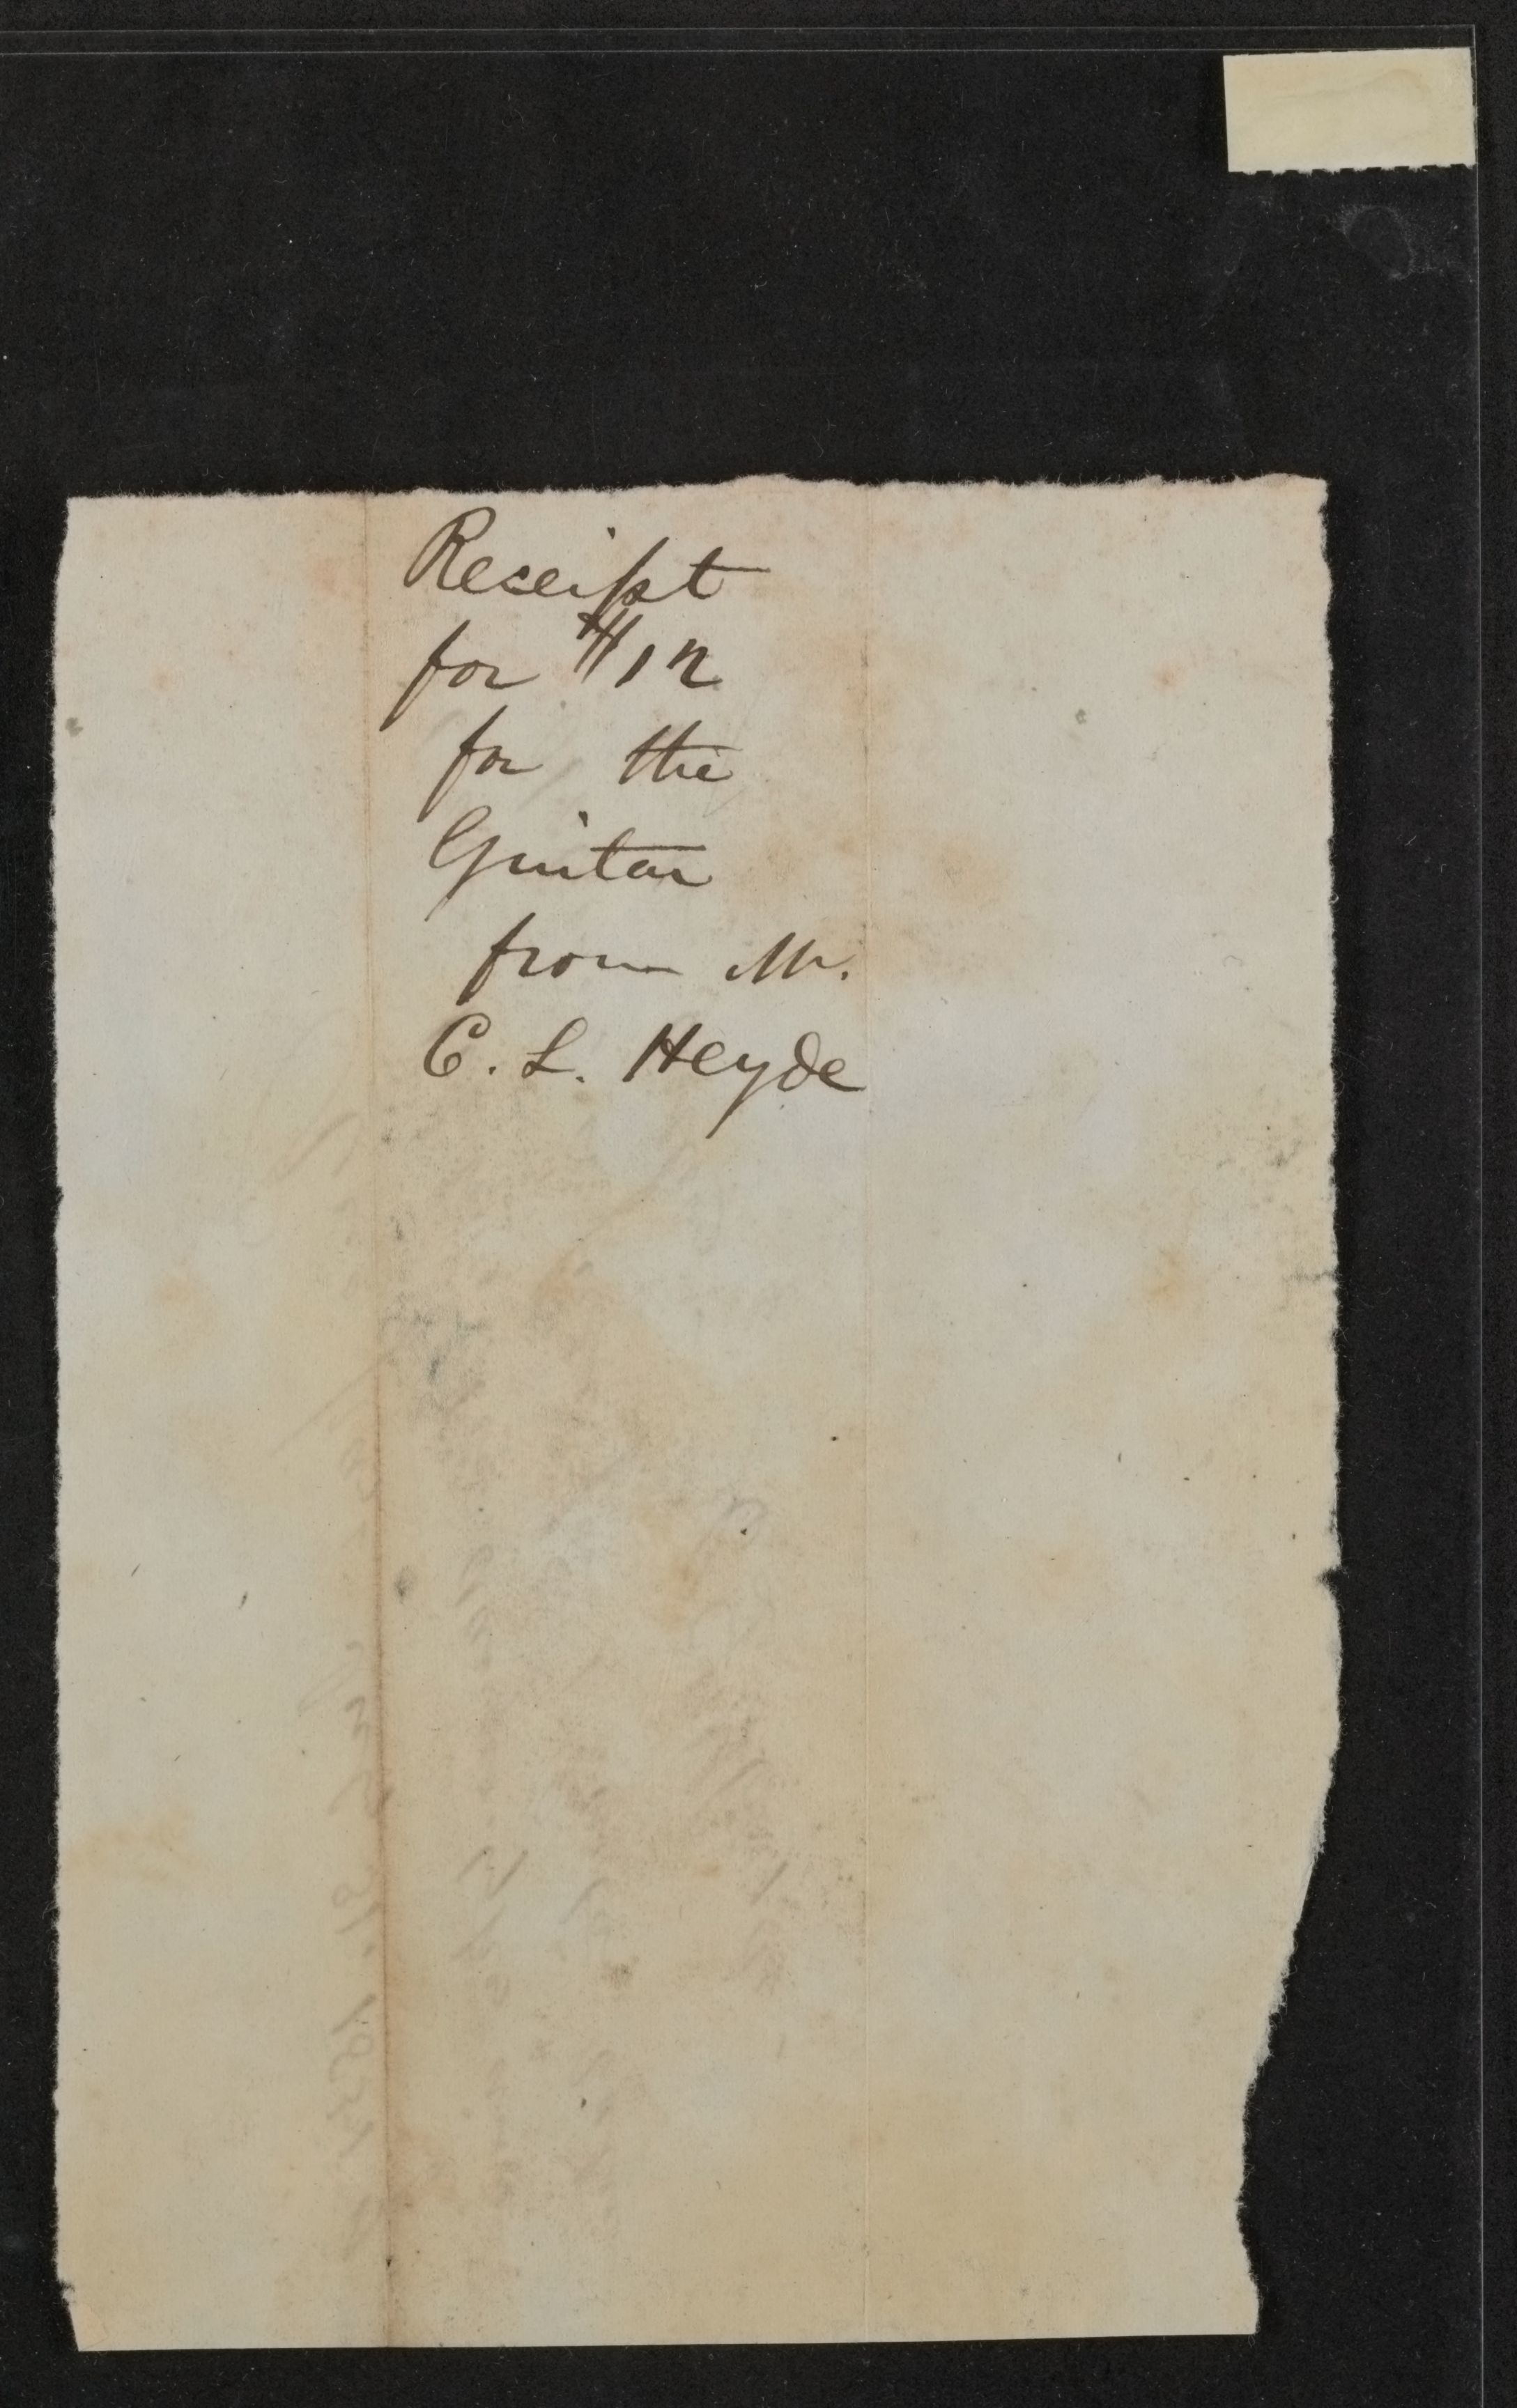 Receipt
for $12
for the
Guitar
from Mr.
C. L. Heyde